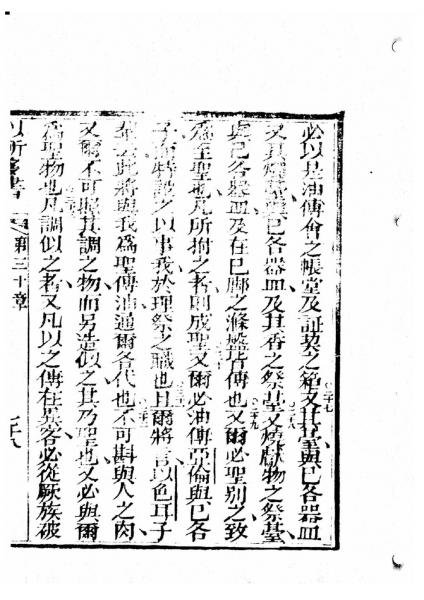 必以是油傅會之帳堂及証契之箱又其臺與已各器皿
又其燈臺與已各器皿及其香之祭臺又燒獻物之祭臺
與已各器皿及在已之滌盤皆傅也又爾必聖別之致
為至聖也凡所拊之者則成聖又爾必油傅亞倫與已各
子而特設之以事我於理祭之職也且爾將言以色耳子
輩云此將與我為聖傅油通爾各代也不可斟與人之肉
又爾不可照其調之物而另造似之其乃聖也又必與爾
為聖物也凡調似之者又凡以之傅在異客必從厥族被
以所多書 第三十章 七十八